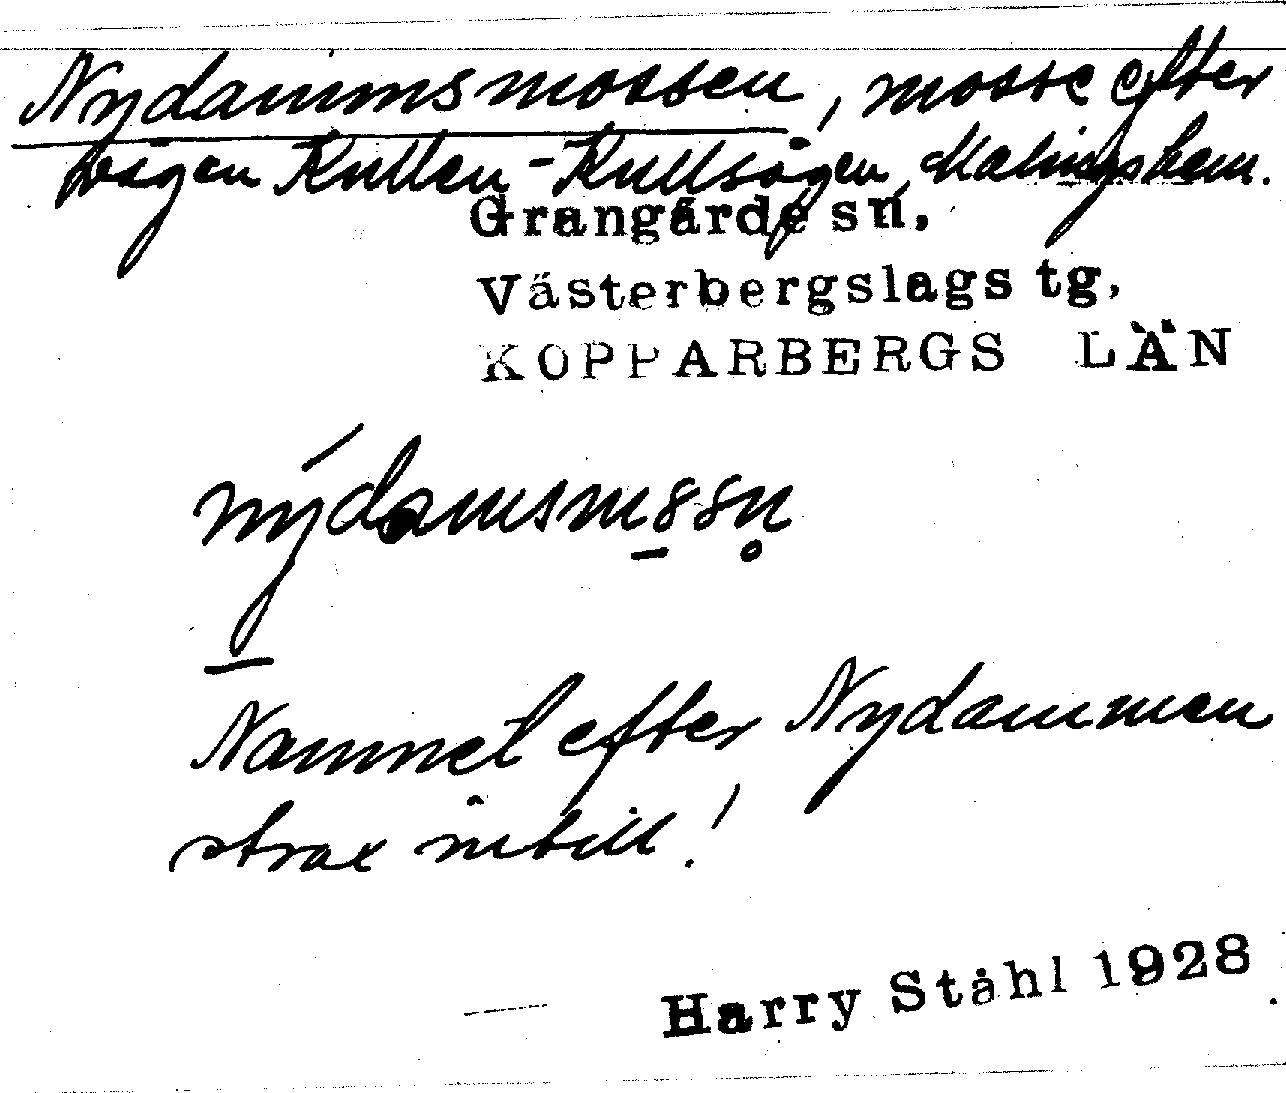 Nydammsmossen, mosse efter
vägen Kullen - Kullsågen, Malingsham.
Grangärde sn,
Västerbergslags tg,
KOPPARBERGS LÄN
nýdamsmssn̥
Namnet efter Nydammen
strax intill!
Harry Ståhl 1928